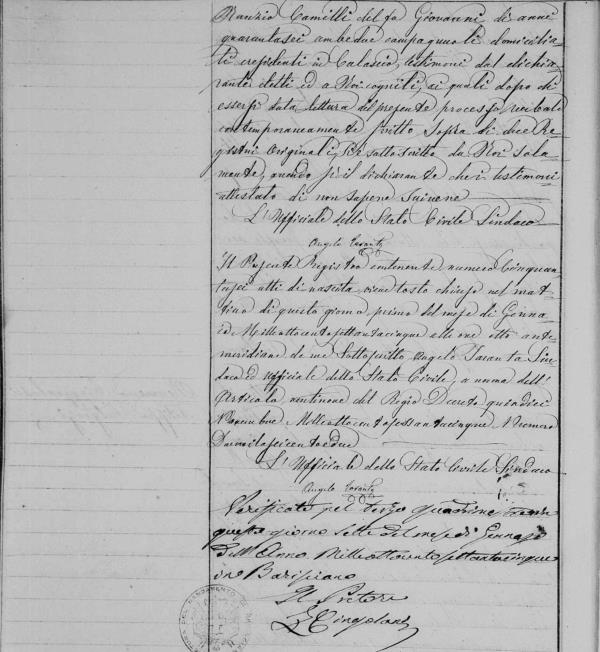 Nunzio Camilli del fu Giovanni di anni
quarantasei ambedue campagnuoli domicilia-
ti e residenti in Calascio, testimoni dal dichia-
rante eletti ed a Noi cogniti, ai quali dopo di
essersi data lettura del presente processo verbale
contemporaneamente scritto sopra di due Re-
gistri Originali, si è sottoscritto da Noi sola-
mente, avendo sì il dichiarante che i testimoni
attestato di non sapere scrivere
L'Uffiziale dello Stato Civile Sindaco
Angelo Taranta
Il Presente Registro contenente numero Cinquan-
tasei atti di nascita viene tosto chiuso nel mat-
tino di questo giorno primo del mese di Genna-
io Milleottocentosettantacinque alle ore otto ante-
meridiane da me Sottoscritto Angelo Taranta Sin-
daco ed Uffiziale dello Stato Civile, a norma dell'
Articolo ventinove del Regio Decreto quindici
Novembre Milleottocentosessantacinque Numero
Duemilaseicentodue
L'Uffiziale dello Stato Civile Sindaco
Angelo Taranta
Verificato pel terzo quadrimestre
questo giorno sette del mese di Gennajo
dell'Anno Milleottocento settantacinque
in Barisciano
Il Pretore
Cingolani